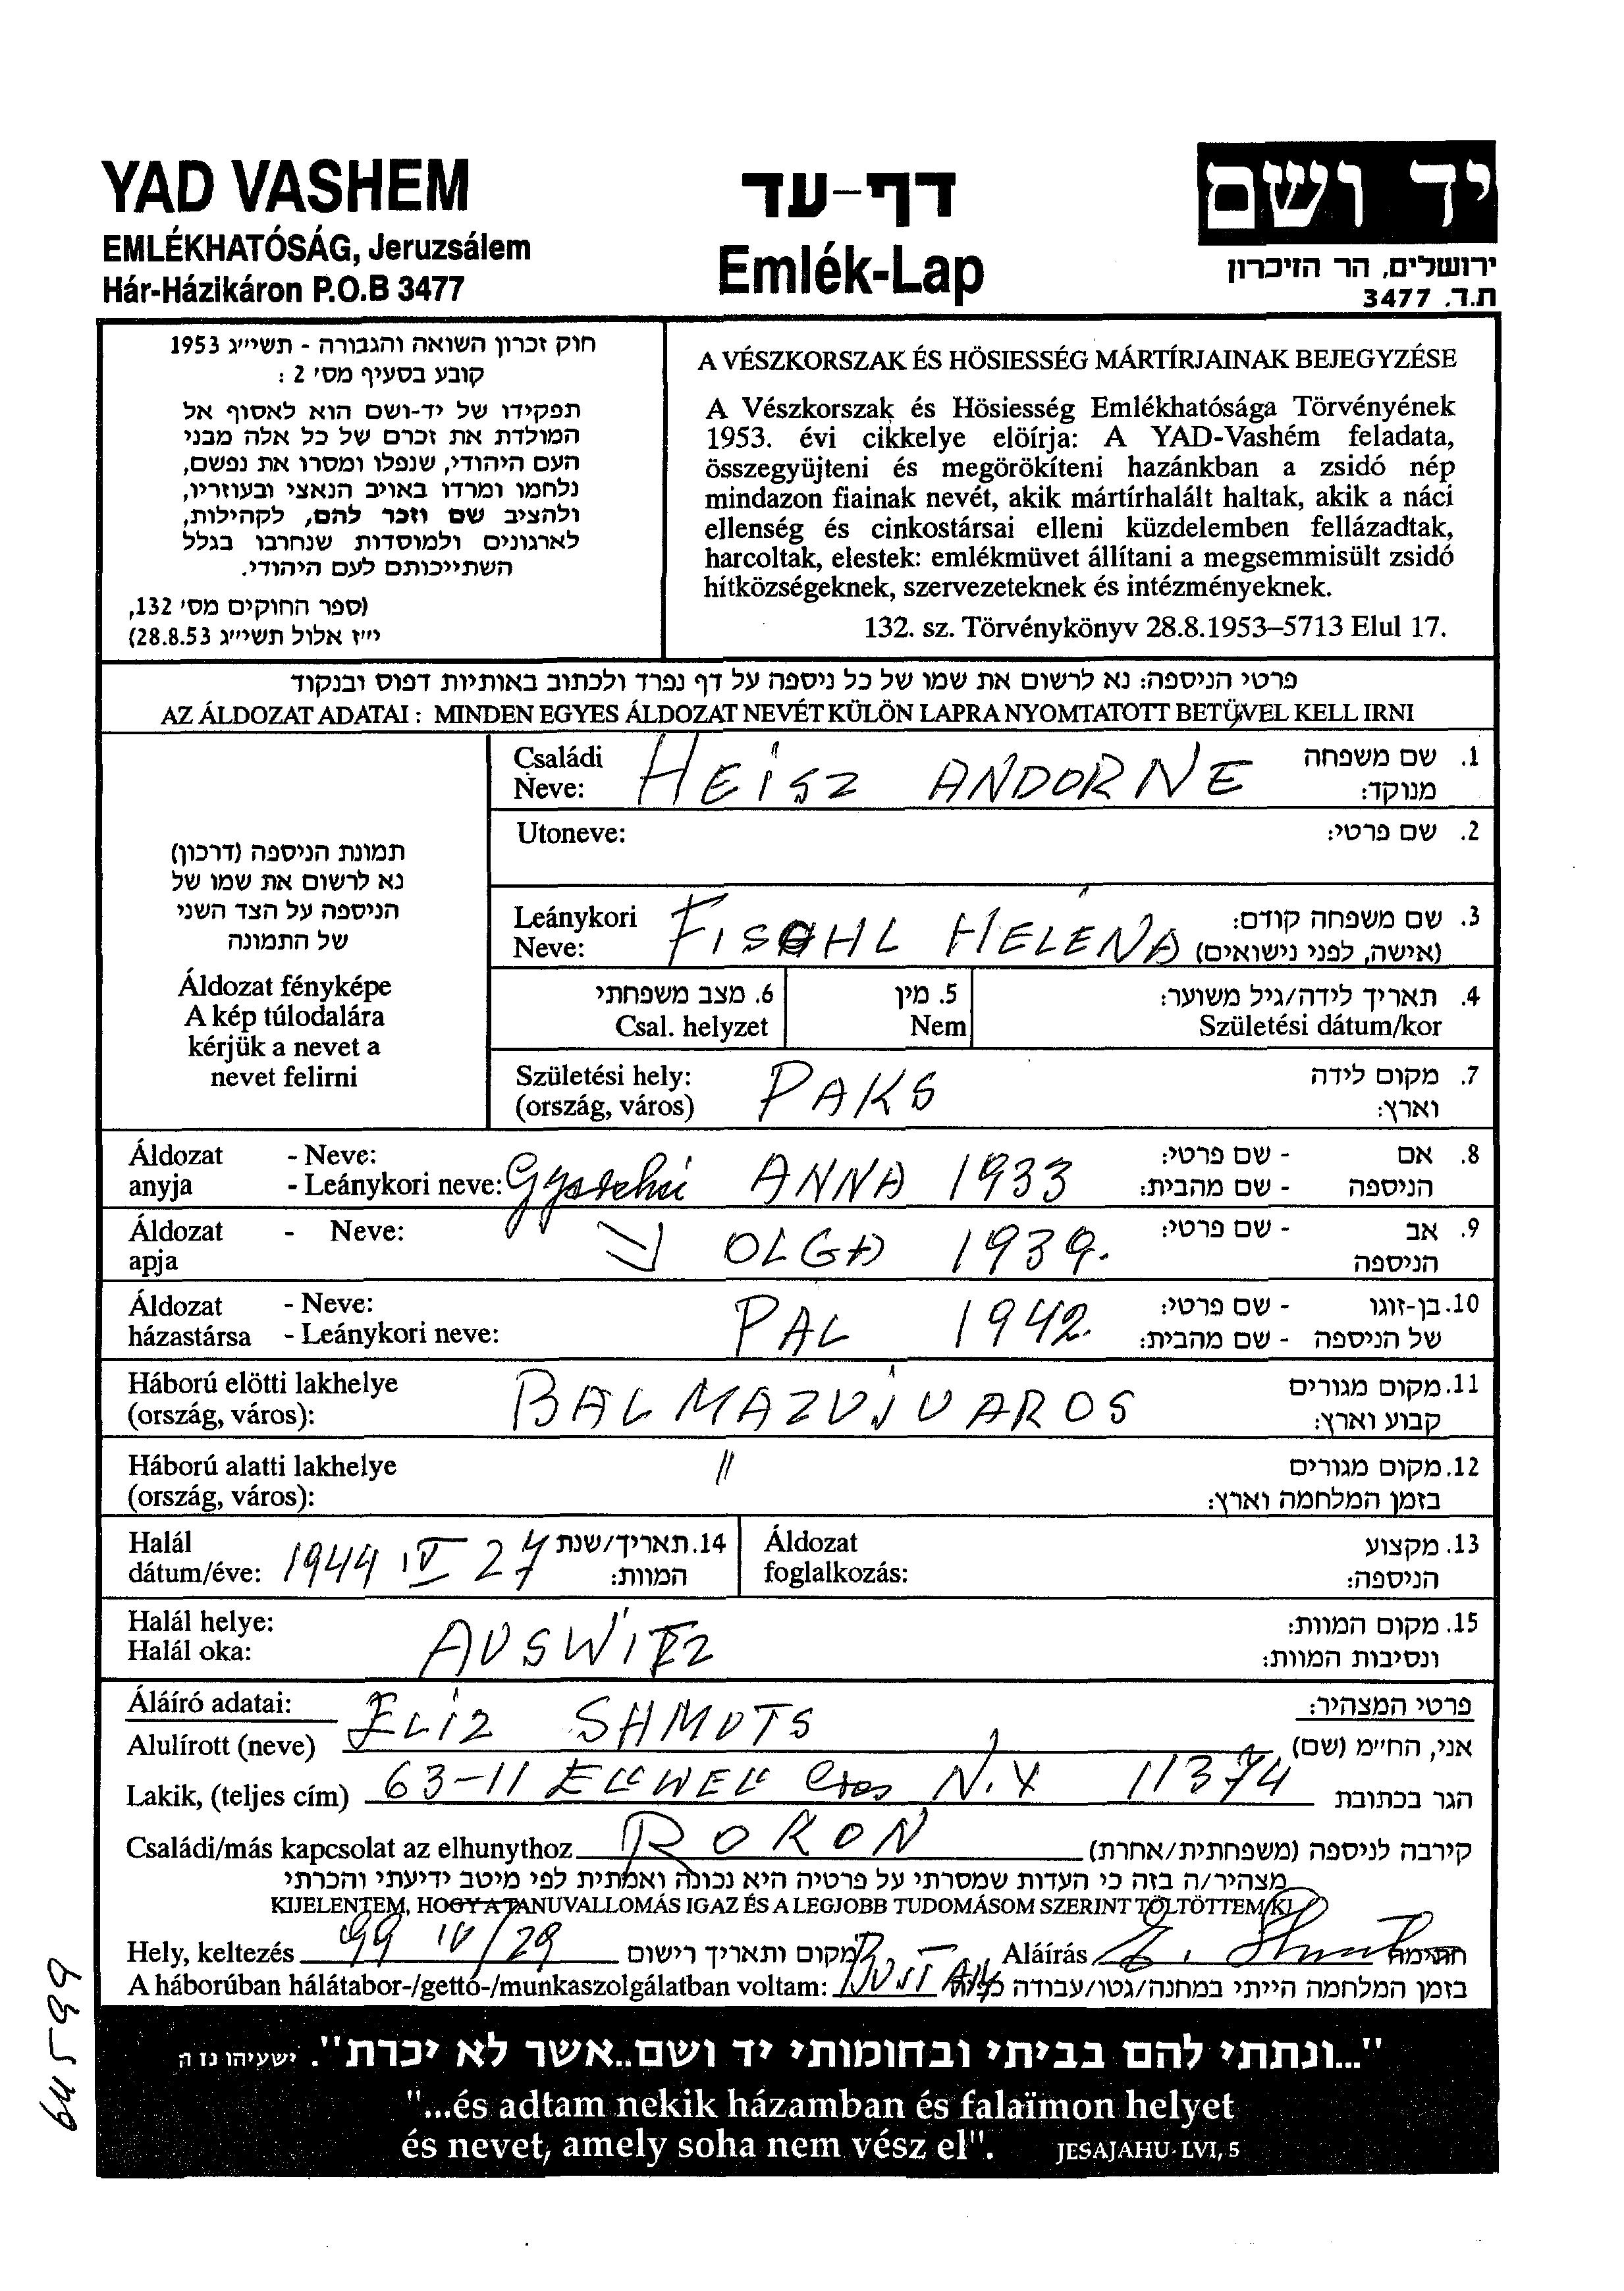 YAD VASHEM
EMLÉKHATÓSÁG, Jeruzsálem
Hár-Házikáron P.O.B 3477
דף-עד
Emlék-Lap
יד ושם
ירושלים, הר הזיכרון
ת.ד. 3477
חוק זכרון השואה והגבורה - תשי״ג 1953
קובע בסעיף מס׳ 2 :
תפקידו של יד-ושם הוא לאסוף אל
המולדת את זכרם של כל אלה מבני
העם היהודי, שנפלו ומסרו את נפשם,
נלחמו ומרדו באויב הנאצי ובעוזריו,
ולהציב שם וזכר להם, לקהילות,
לארגונים ולמוסדות שנחרבו בגלל
השתייכותם לעם היהודי.
(ספר החוקים מס׳ 132,
י״ז אלול תשי״ג 28.8.53)
A VÉSZKORSZAK ÉS HÖSIESSÉG MÁRTÍRJAINAK BEJEGYZÉSE
A Vészkorszak és Hösiesség Emlékhatósága Törvényének
1953. évi cikkelye elöírja: A YAD-Vashém feladata,
összegyüjteni és megörökíteni hazánkban a zsidó nép
mindazon fiainak nevét, akik mártírhalált haltak, akik a náci
ellenség és cinkostársai elleni küzdelemben fellázadtak,
harcoltak, elestek: emlékmüvet állítani a megsemmisült zsidó
hítközségeknek, szervezeteknek és intézményeknek.
132. sz. Törvénykönyv 28.8.1953–5713 Elul 17.
פרטי הניספה: נא לרשום את שמו של כל ניספה על דף נפרד ולכתוב באותיות דפוס ובנקוד
AZ ÁLDOZAT ADATAI : MINDEN EGYES ÁLDOZAT NEVÉT KÜLÖN LAPRA NYOMTATOTT BETÜVEL KELL IRNI
תמונת הניספה (דרכון)
נא לרשום את שמו של
הניספה על הצד השני
של התמונה
Áldozat fényképe
A kép túlodalára
kérjük a nevet a
nevet felirni
Családi Neve: HEISZ ANDORNE 1. שם משפחה מנוקד:
Utoneve: 2. שם פרטי:
Leánykori Neve: FISCHL HELENA 3. שם משפחה קודם: (אישה, לפני נישואים)
6. מצב משפחתי Csal. helyzet
5. מין Nem
4. תאריך לידה/גיל משוער: Születési dátum/kor
Születési hely: (ország, város) PAKS 7. מקום לידה וארץ:
Áldozat anyja - Neve: - Leánykori neve: ANNA 1933 8. אם הניספה - שם פרטי: - שם מהבית:
Áldozat apja - Neve: OLGA 1939. 9. אב הניספה - שם פרטי:
Áldozat házastársa - Neve: - Leánykori neve: PAL 1942. 10. בן-זוגו של הניספה - שם פרטי: - שם מהבית:
Háború elötti lakhelye (ország, város): BALMAZUJVAROS 11. מקום מגורים קבוע וארץ:
Háború alatti lakhelye (ország, város): 〃 12. מקום מגורים בזמן המלחמה וארץ:
Halál dátum/éve: 1944 IV 27 14. תאריך/שנת המוות:
Áldozat foglalkozás: 13. מקצוע הניספה:
Halál helye: Halál oka: AUSWITZ 15. מקום המוות: ונסיבות המוות:
Áláíró adatai: פרטי המצהיר:
Alulírott (neve) ELIZ SHMUTS אני, החי״מ (שם)
Lakik, (teljes cím) 63-11 N.Y 11374 הגר בכתובת
Családi/más kapcsolat az elhunythoz ROKON קירבה לניספה (משפחתית/אחרת)
מצהיר/ה בזה כי העדות שמסרתי על פרטיה היא נכונה ואמתית לפי מיטב ידיעתי והכרתי
KIJELENTEM, HOGY A TANUVALLOMÁS IGAZ ÉS A LEGJOBB TUDOMÁSOM SZERINT TÖLTÖTTEM KI
Hely, keltezés 99 IV/29 מקום ותאריך רישום Aláírás חתימה
A háborúban hálátabor-/gettó-/munkaszolgálatban voltam: בזמן המלחמה הייתי במחנה/גטו/עבודה
"...ונתתי להם בביתי ובחומותי יד ושם..אשר לא יכרת". ישעיהו נז ה
"...és adtam nekik házamban és falaïmon helyet
és nevet, amely soha nem vész el". JESAJAHU LVI, 5